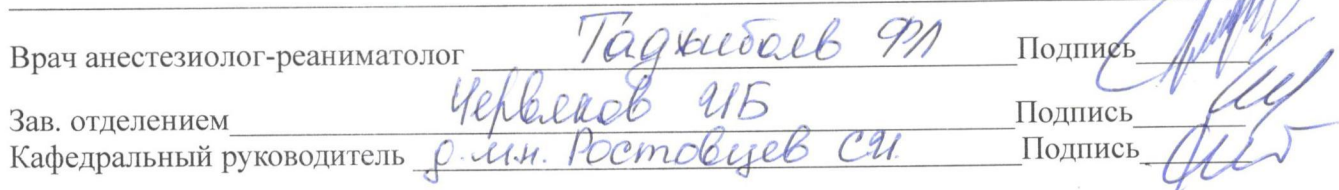 Врач анестезиолог-реаниматолог Таджибоев ФЛ Подпись
Зав. отделением Червяков ИБ Подпись
Кафедральный руководитель д.м.н. Ростовцев СИ. Подпись